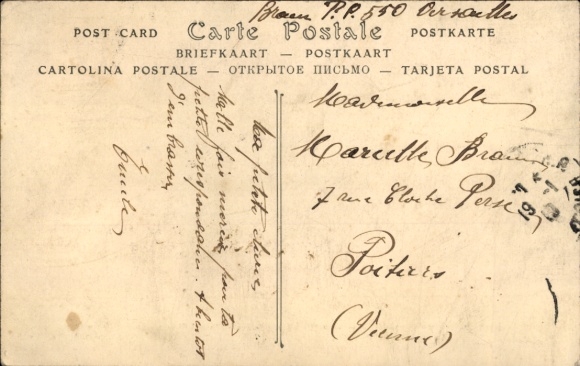 Braun P.P. 550 Versailles
Carte Postale
POST CARD
POSTKARTE
BRIEFKAART — POSTKAART
CARTOLINA POSTALE — ОТКРЫТОЕ ПИСЬМО — TARJETA POSTAL
Ma petite
Mille fois merci pour ta
petite correspondance. A bientot
J'embrasse
Emile
Mademoiselle
Marcelle Braun
7 rue Cloche Perse
Poitiers
(Vienne)